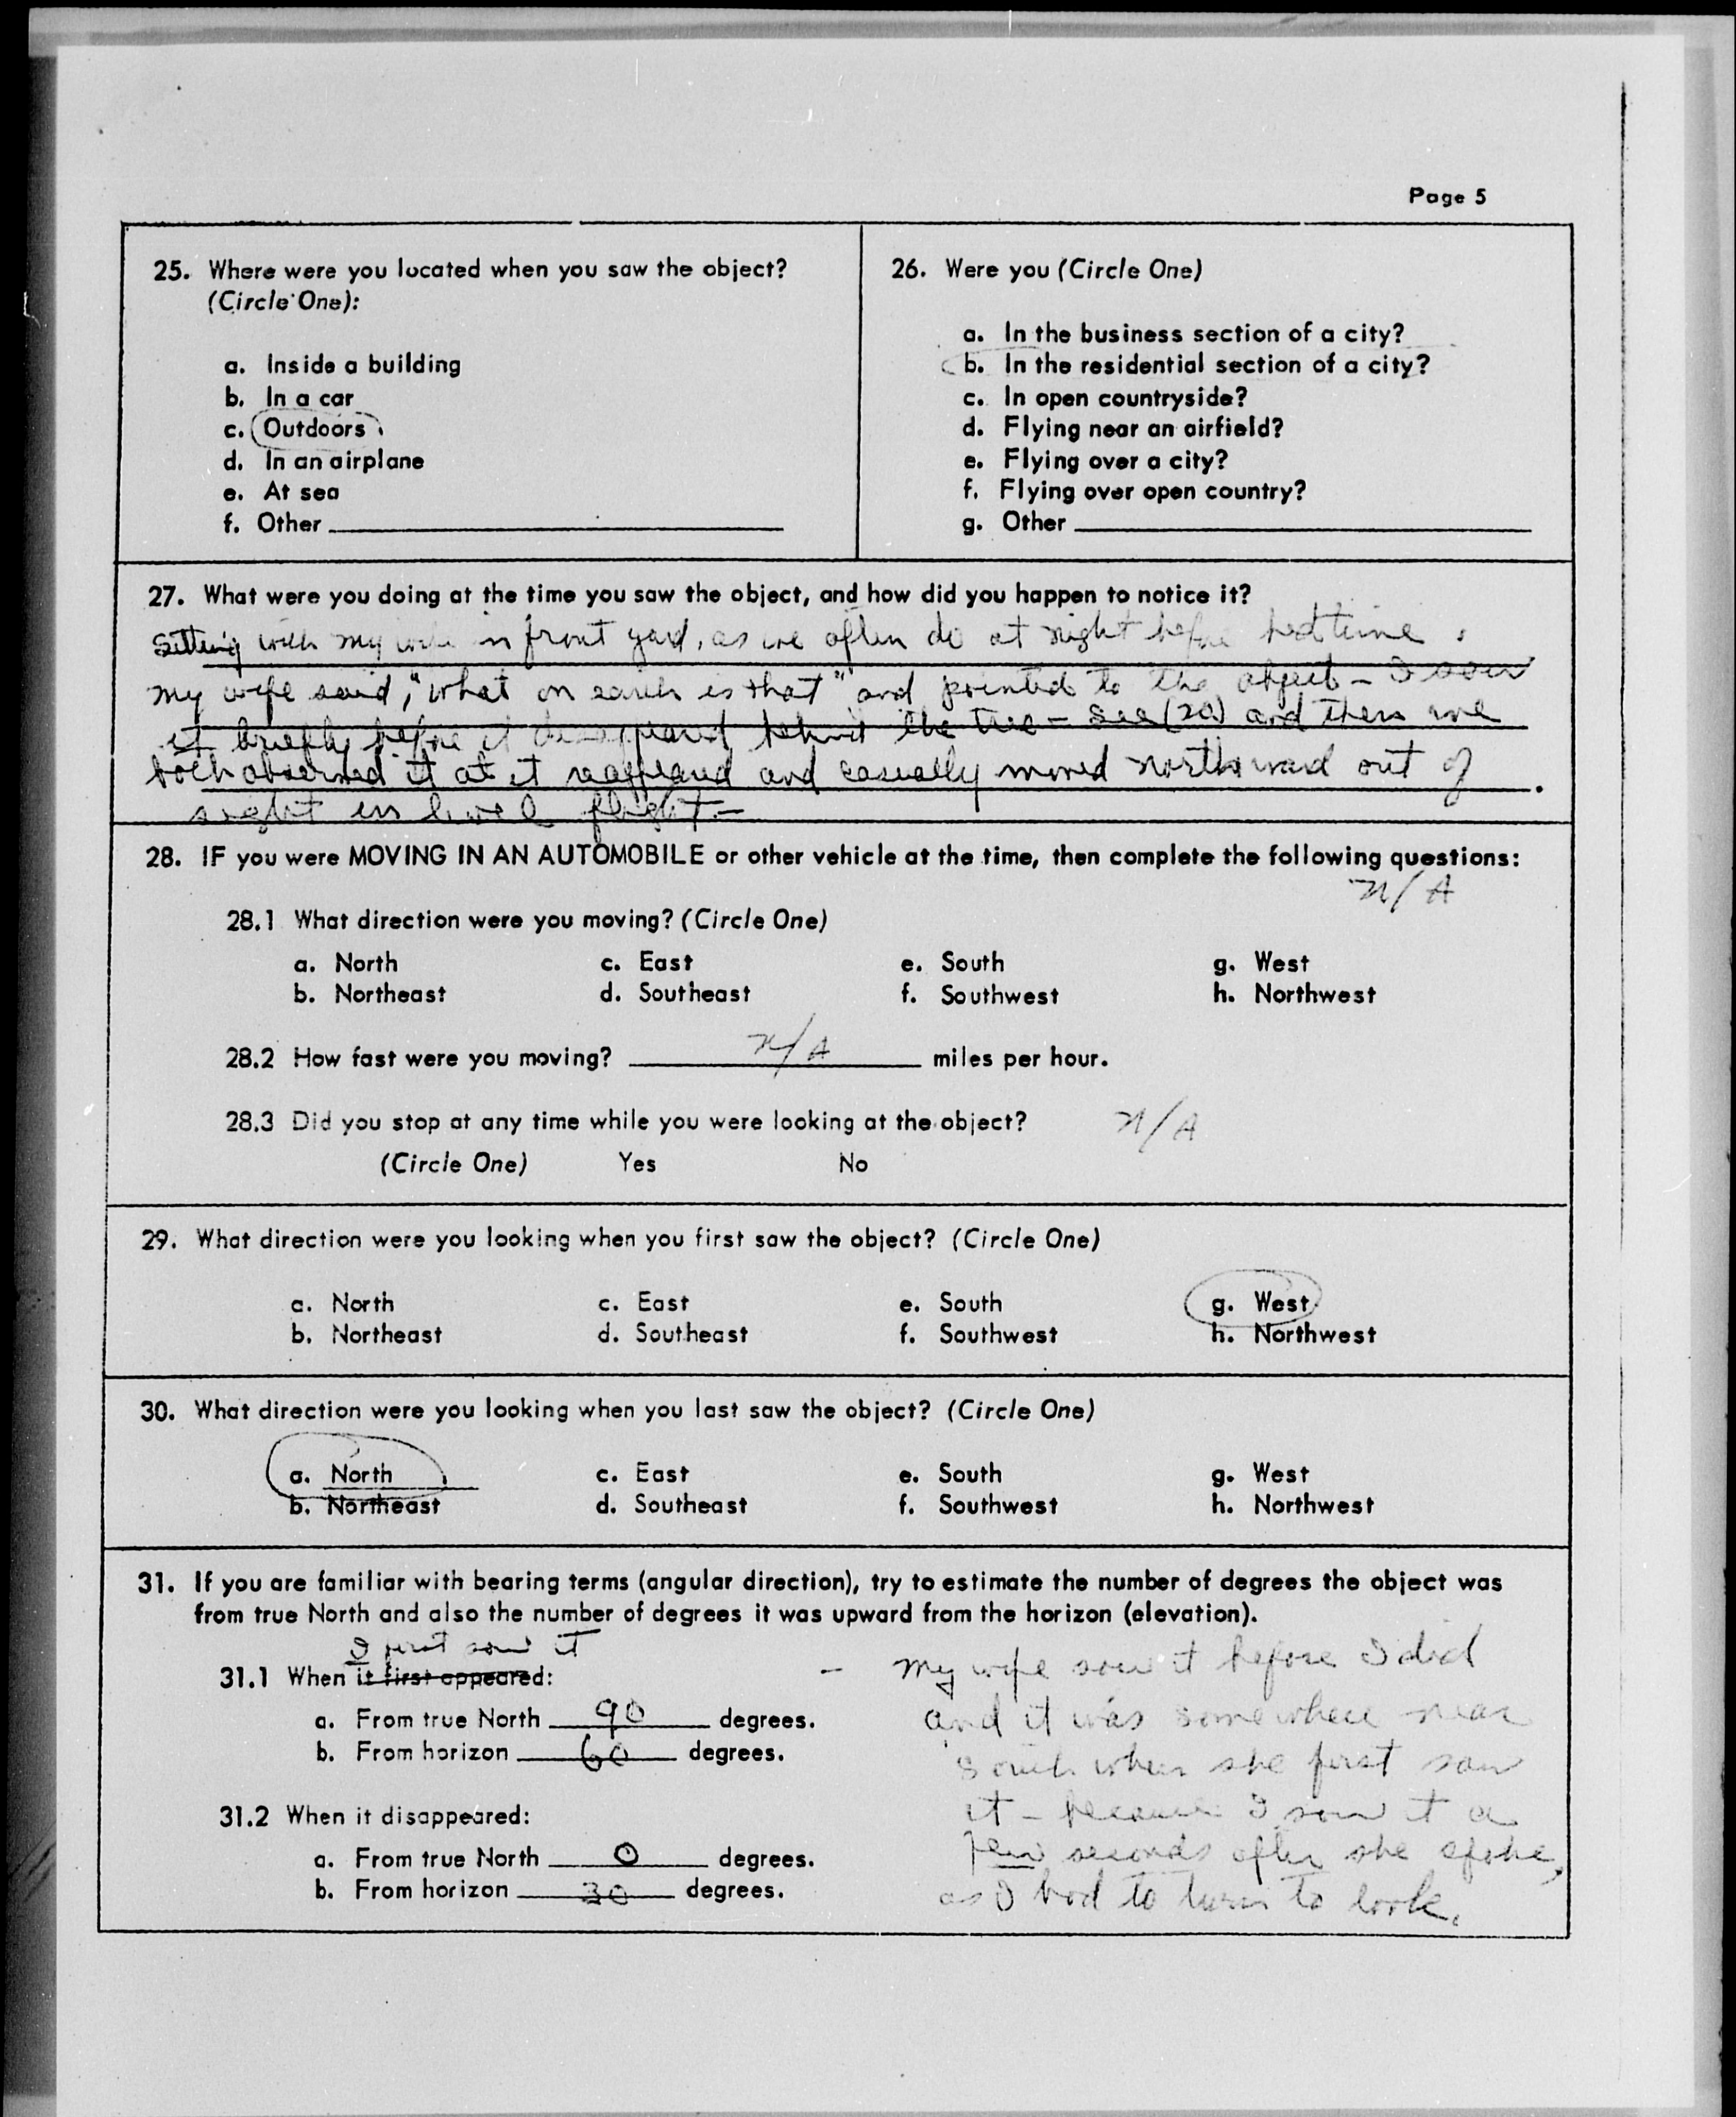 Page 5
25. Where were you located when you saw the object?
(Circle One):
a. Inside a building
b. In a car
c. Outdoors
d. In an airplane
e. At sea
f. Other
26. Were you (Circle One)
a. In the business section of a city?
b. In the residential section of a city?
c. In open countryside?
d. Flying near an airfield?
e. Flying over a city?
f. Flying over open country?
g. Other
27. What were you doing at the time you saw the object, and how did you happen to notice it?
Sitting with my wife in front yard, as we often do at night before bedtime.
my wife said, "what on earth is that" and pointed to the object - I saw
it briefly before it disappeared behind the tree - see (20) and then we
both observed it at it reappeared and casually moved northward out of
sight in level flight -
28. IF you were MOVING IN AN AUTOMOBILE or other vehicle at the time, then complete the following questions:
N/A
28.1 What direction were you moving? (Circle One)
a. North c. East e. South g. West
b. Northeast d. Southeast f. Southwest h. Northwest
28.2 How fast were you moving? N/A miles per hour.
28.3 Did you stop at any time while you were looking at the object? N/A
(Circle One) Yes No
29. What direction were you looking when you first saw the object? (Circle One)
a. North c. East e. South g. West
b. Northeast d. Southeast f. Southwest h. Northwest
30. What direction were you looking when you last saw the object? (Circle One)
a. North c. East e. South g. West
b. Northeast d. Southeast f. Southwest h. Northwest
31. If you are familiar with bearing terms (angular direction), try to estimate the number of degrees the object was
from true North and also the number of degrees it was upward from the horizon (elevation).
I first saw it
31.1 When it first appeared:
a. From true North 90 degrees.
b. From horizon 60 degrees.
31.2 When it disappeared:
a. From true North 0 degrees.
b. From horizon 30 degrees.
- My wife saw it before I did
and it was somewhere near
south when she first saw
it - because I saw it a
few seconds after she spoke,
as I had to turn to look.